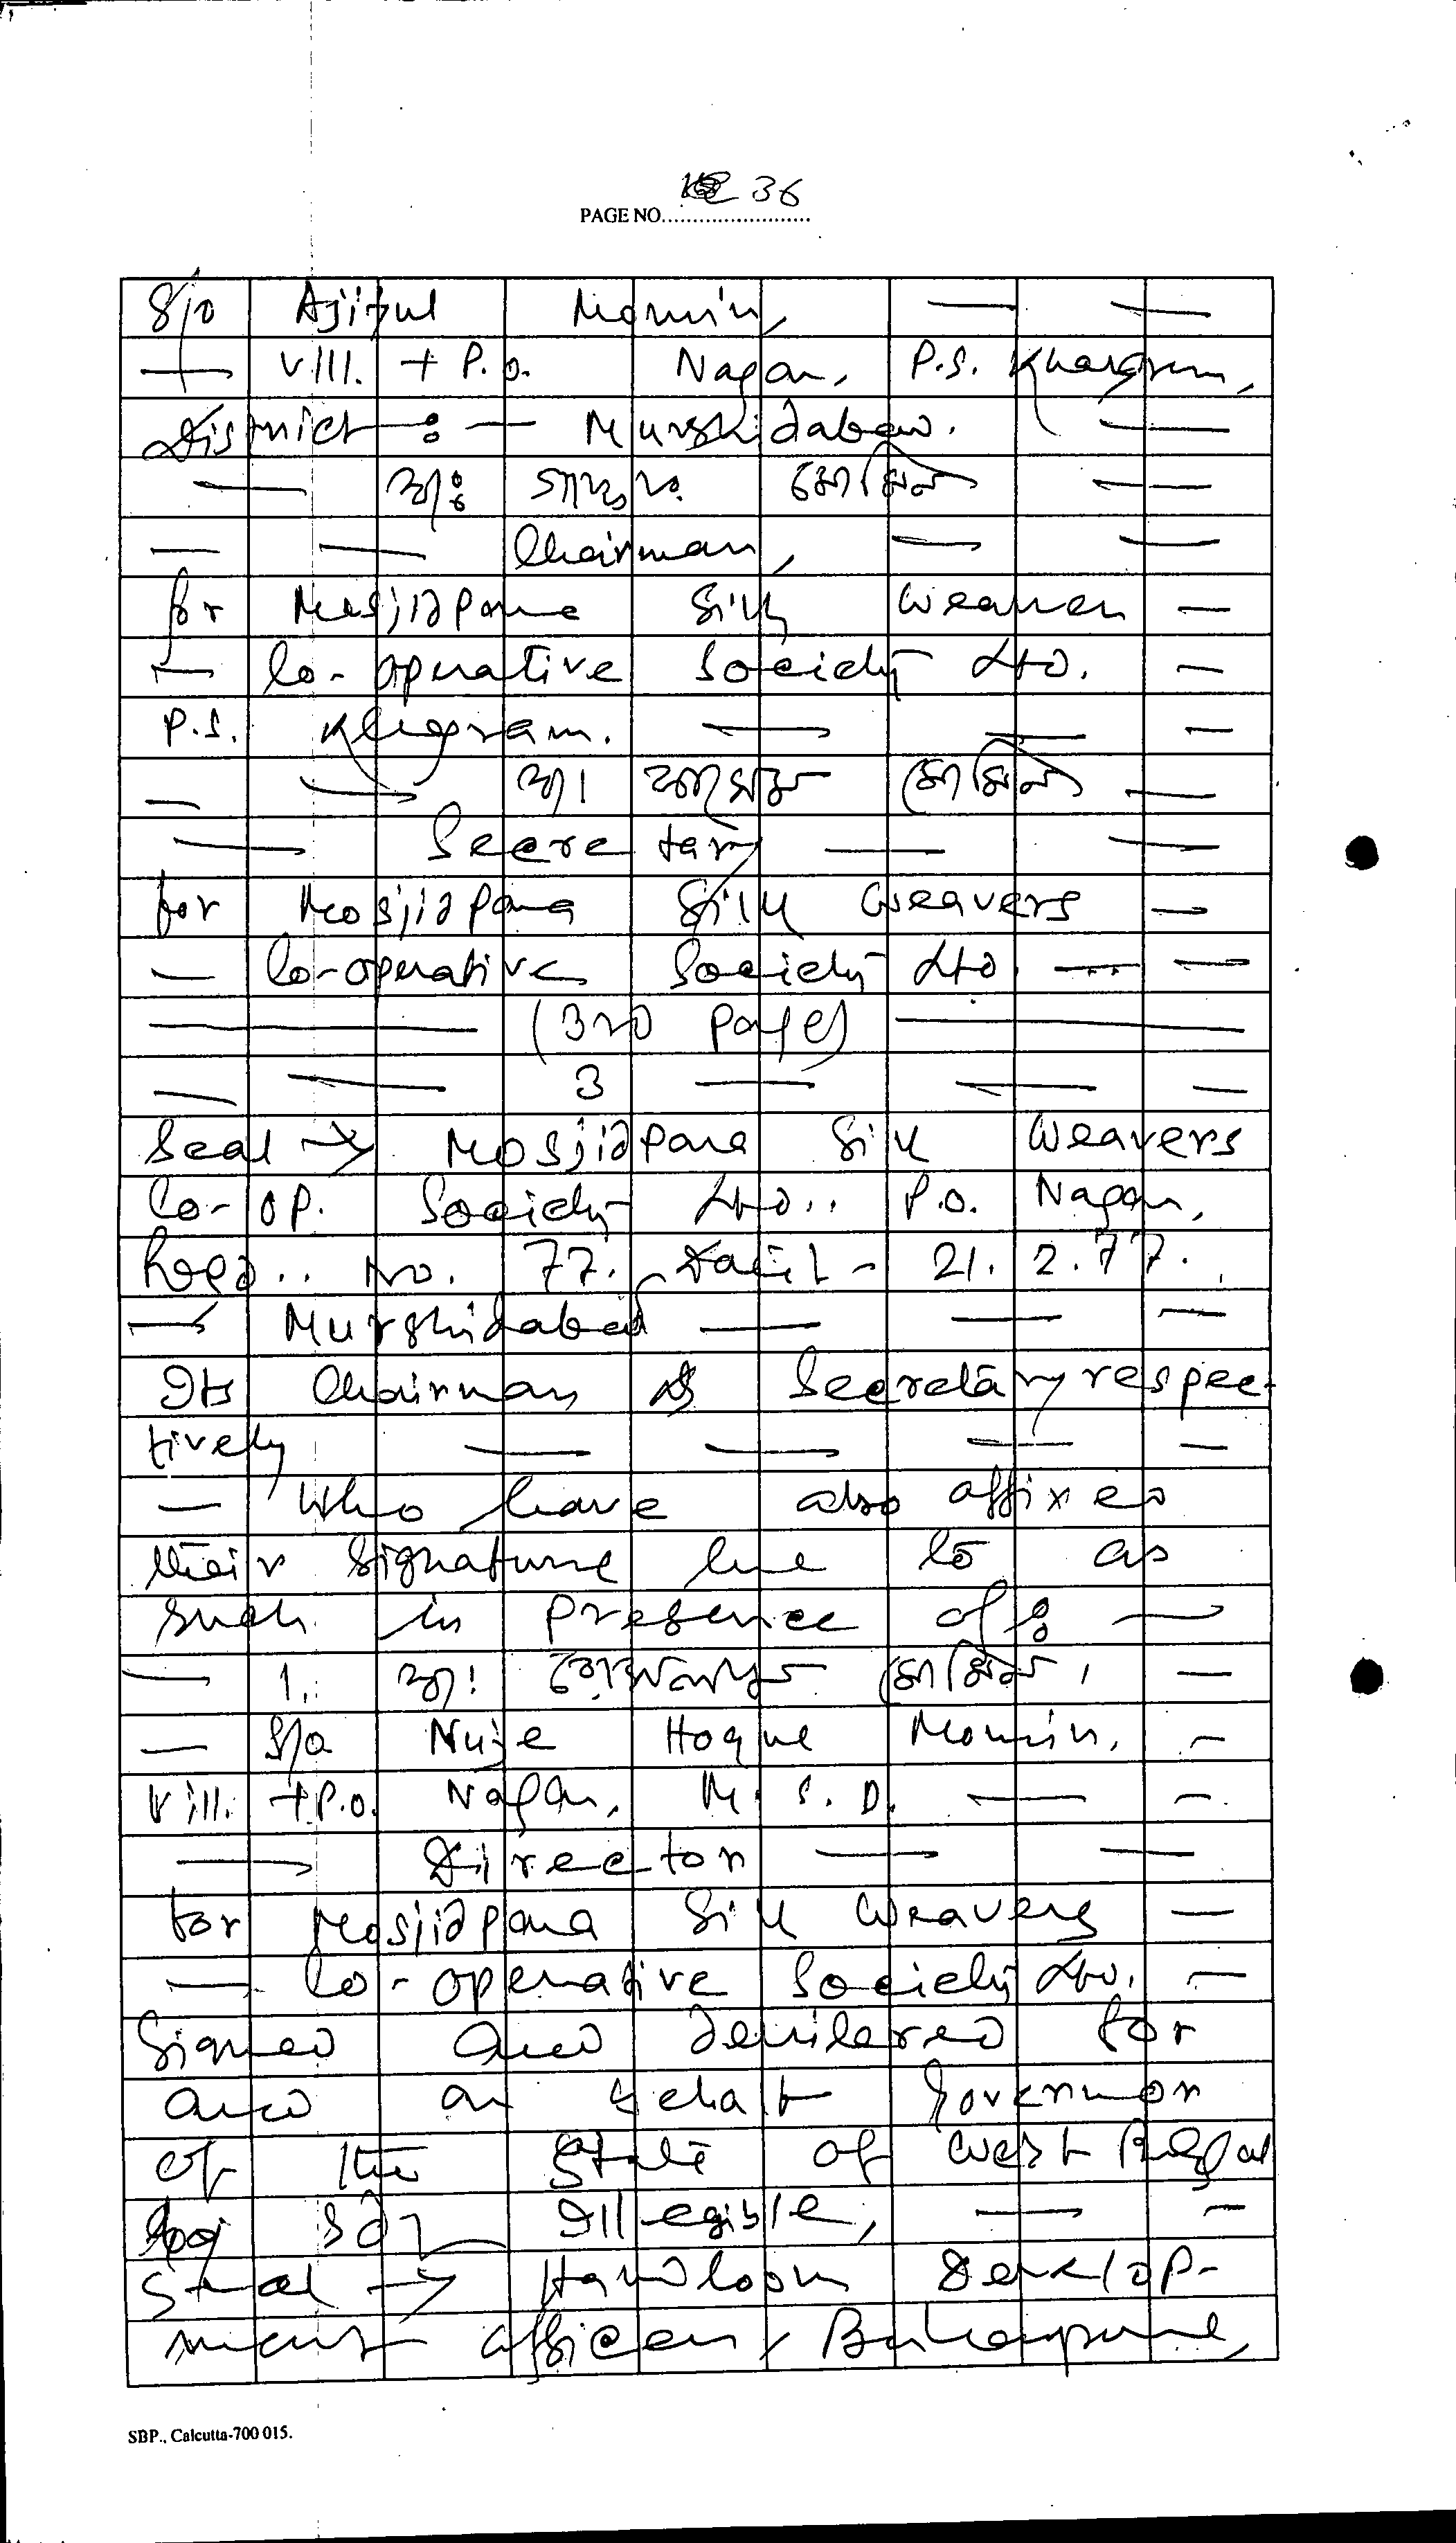 36
PAGE NO.
S/o Ajijul Momin,
— Vill. + P.O. Nagar, P.S. Khargram,
District :— Murshidabad.
— স্বাঃ মোমিন —
— — Chairman, — —
for Mosjidpara Silk Weaver —
— Co-operative Society Ltd. —
P.S. Khargram. — — —
— — স্বা। মোমিন —
— Secretary — —
for Mosjidpara Silk Weavers —
— Co-operative Society Ltd. — —
— (3rd Page) —
— — 3 — — —
Seal → Mosjidpara Silk Weavers
Co-op. Society Ltd.. P.O. Nagar,
Regd.. No. 77. Date - 21. 2. 77.
— Murshidabad — — —
Its Chairman & Secretary respec-
tively — — — —
— Who have also affixed
their signature here to as
such in presence of: —
— 1. স্বা: মোমিন, —
— S/o Hoque Momin. —
Vill. + P.O. Nagar, M. S. D. — —
— Director — —
for Mosjidpara Silk Weavers —
— Co-operative Society Ltd. —
Signed and delivered for
and on behalf Governor
of the State of West Bengal
by Sd/- Illegible, — —
Seal → Handloom Develop-
ment officer, Berhampore,
SBP., Calcutta-700 015.